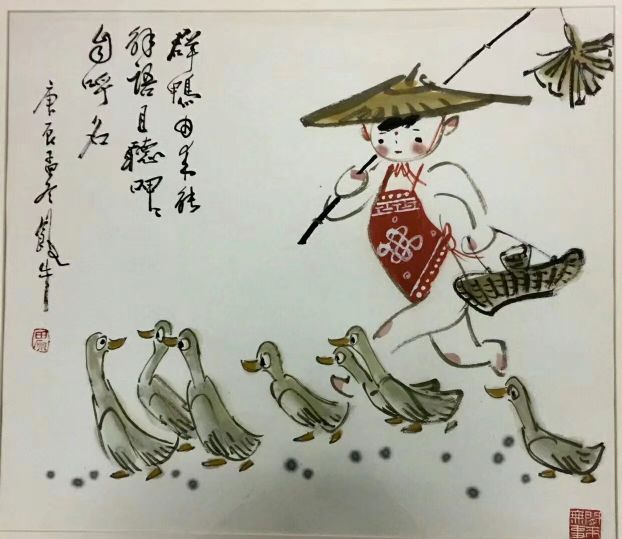 群鴨由來能
解語且聽呷〻
自呼名
庚辰孟冬